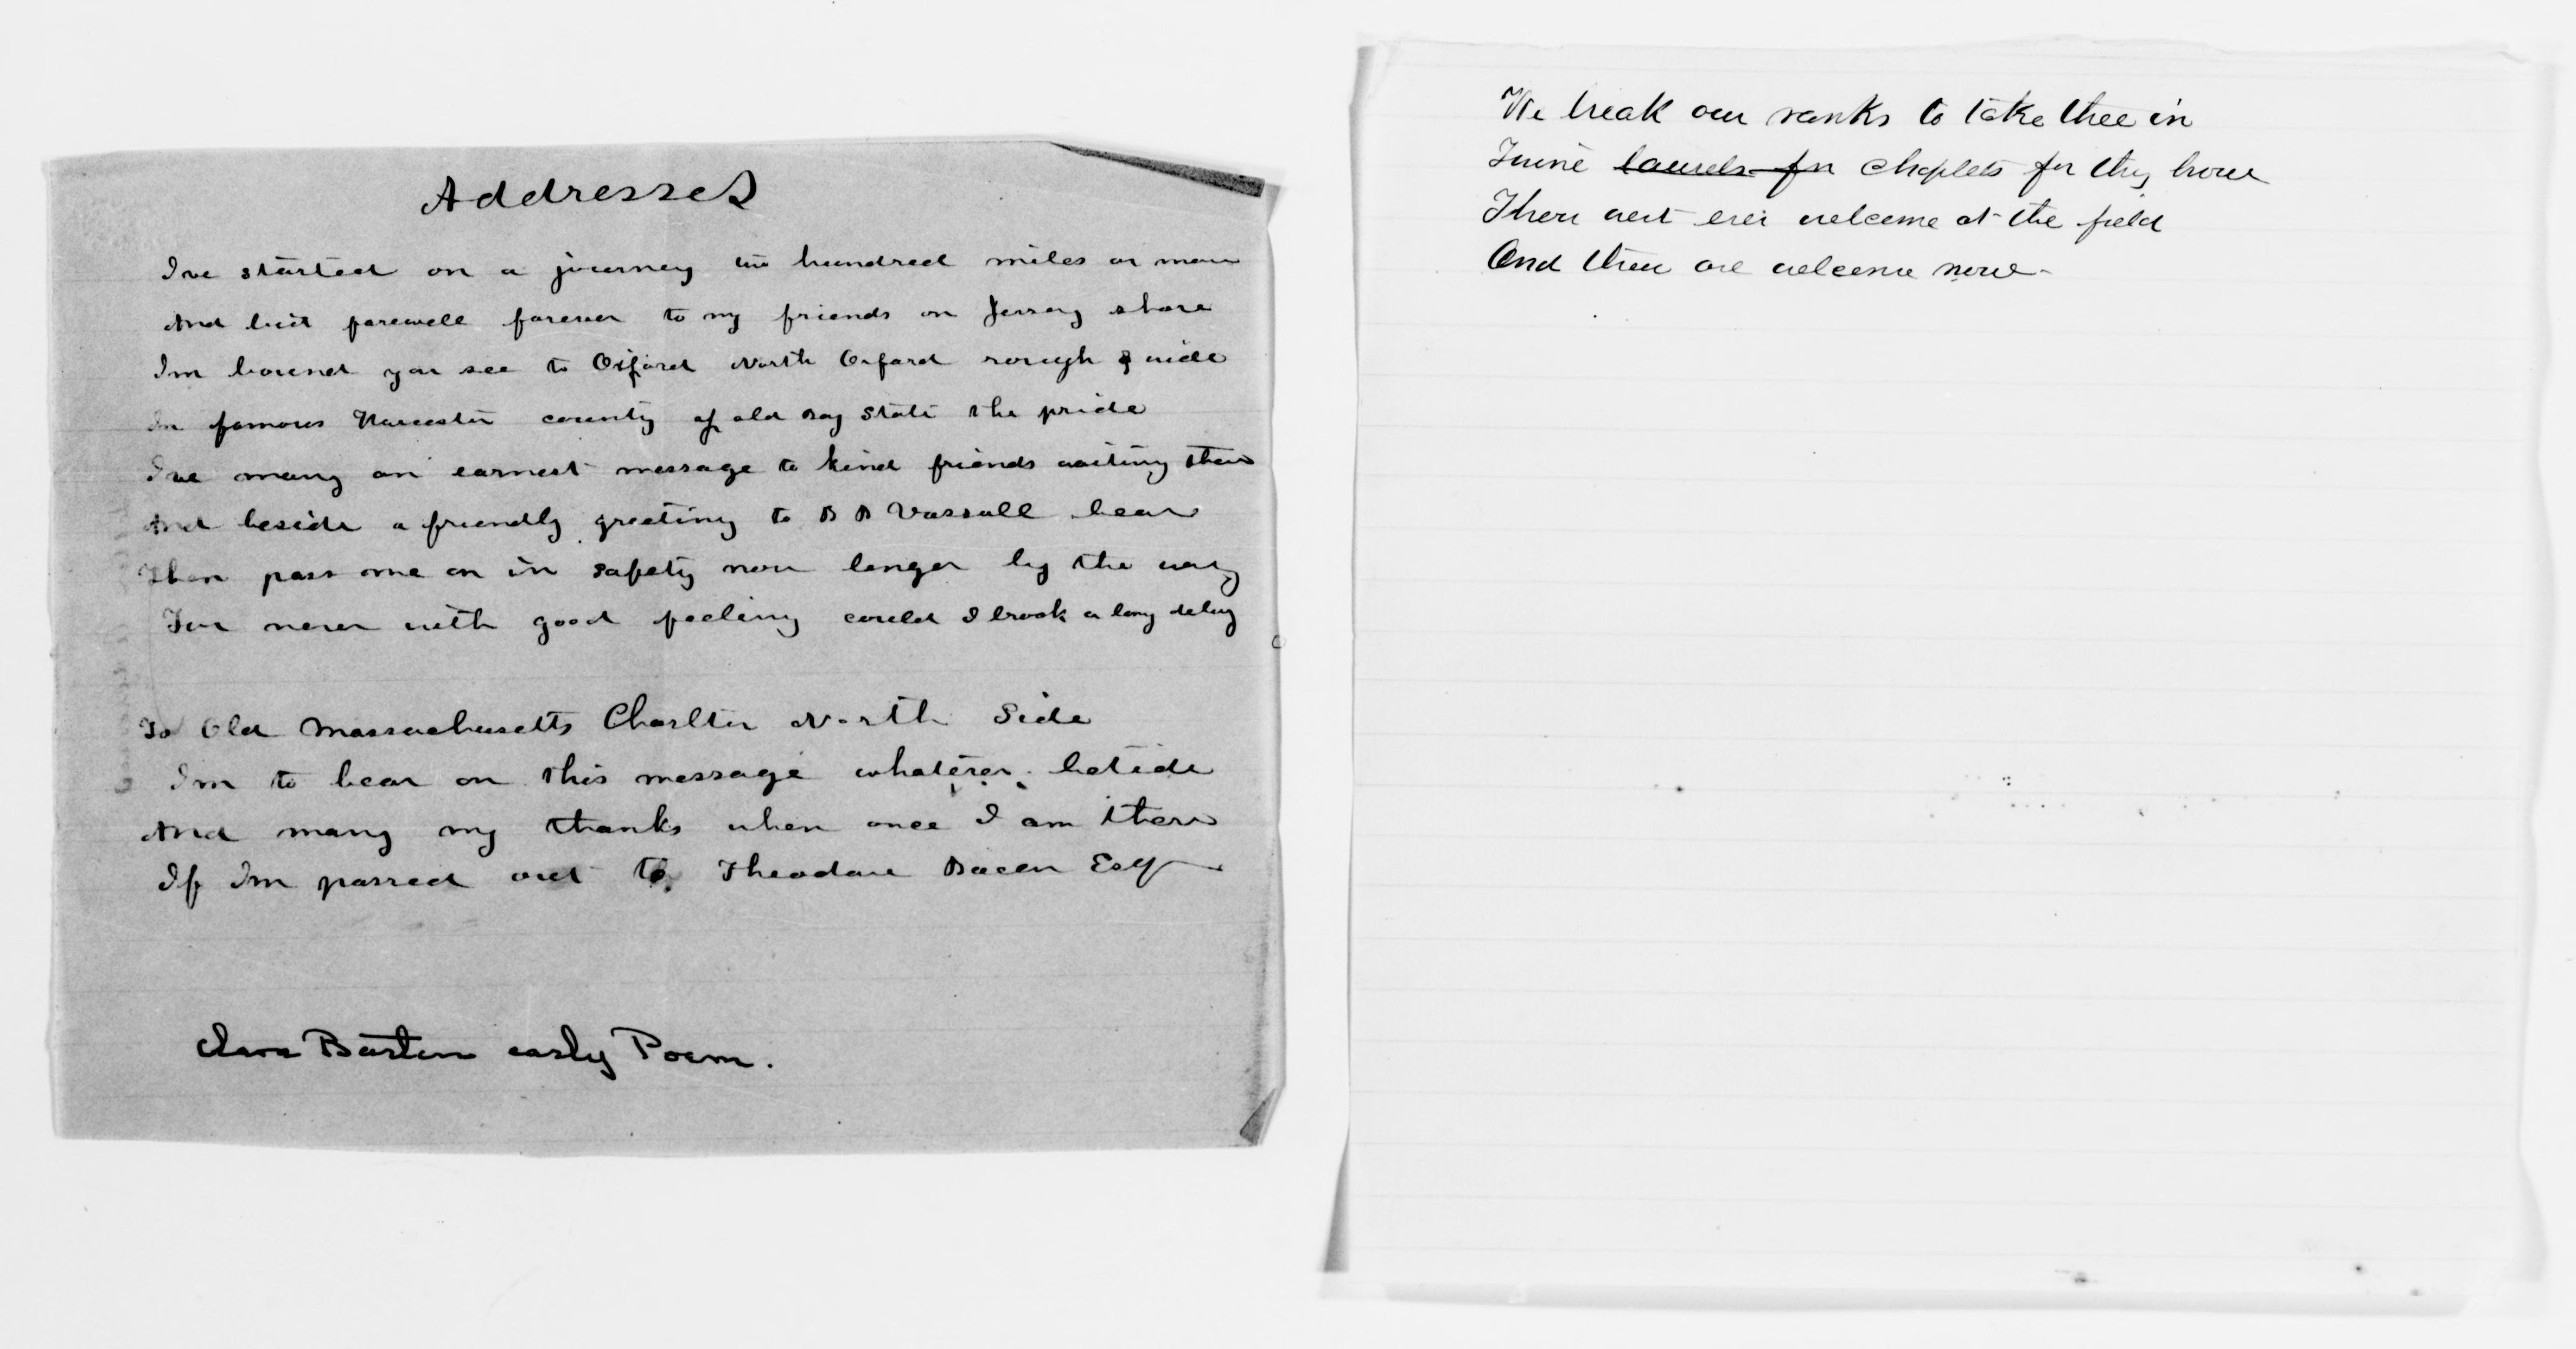 Addresses
Ive started on a journey two hundred miles or more
And bid farewell forever to my friends on Jersey shore
Im bound you see to Oxford North Oxford rough & wide
In famous Worcester county of old Bay State the pride
Ive many an earnest message to kind friends waiting there
And beside a friendly greeting to B B Vassall bear
Then pass me on in safety nor linger by the way
For never with good feeling could I brook a long delay
To Old Massachusetts Charlton North Side
Im to bear on this message whatever betide
And many my thanks when once I am there
If Im passed out to Theodore Bacon Esq
Clara Barton early Poem.
We break our ranks to take thee in
Twine laurels for chaplets for thy brow
Thou wert ever welcome at the field
And thou art welcome now-